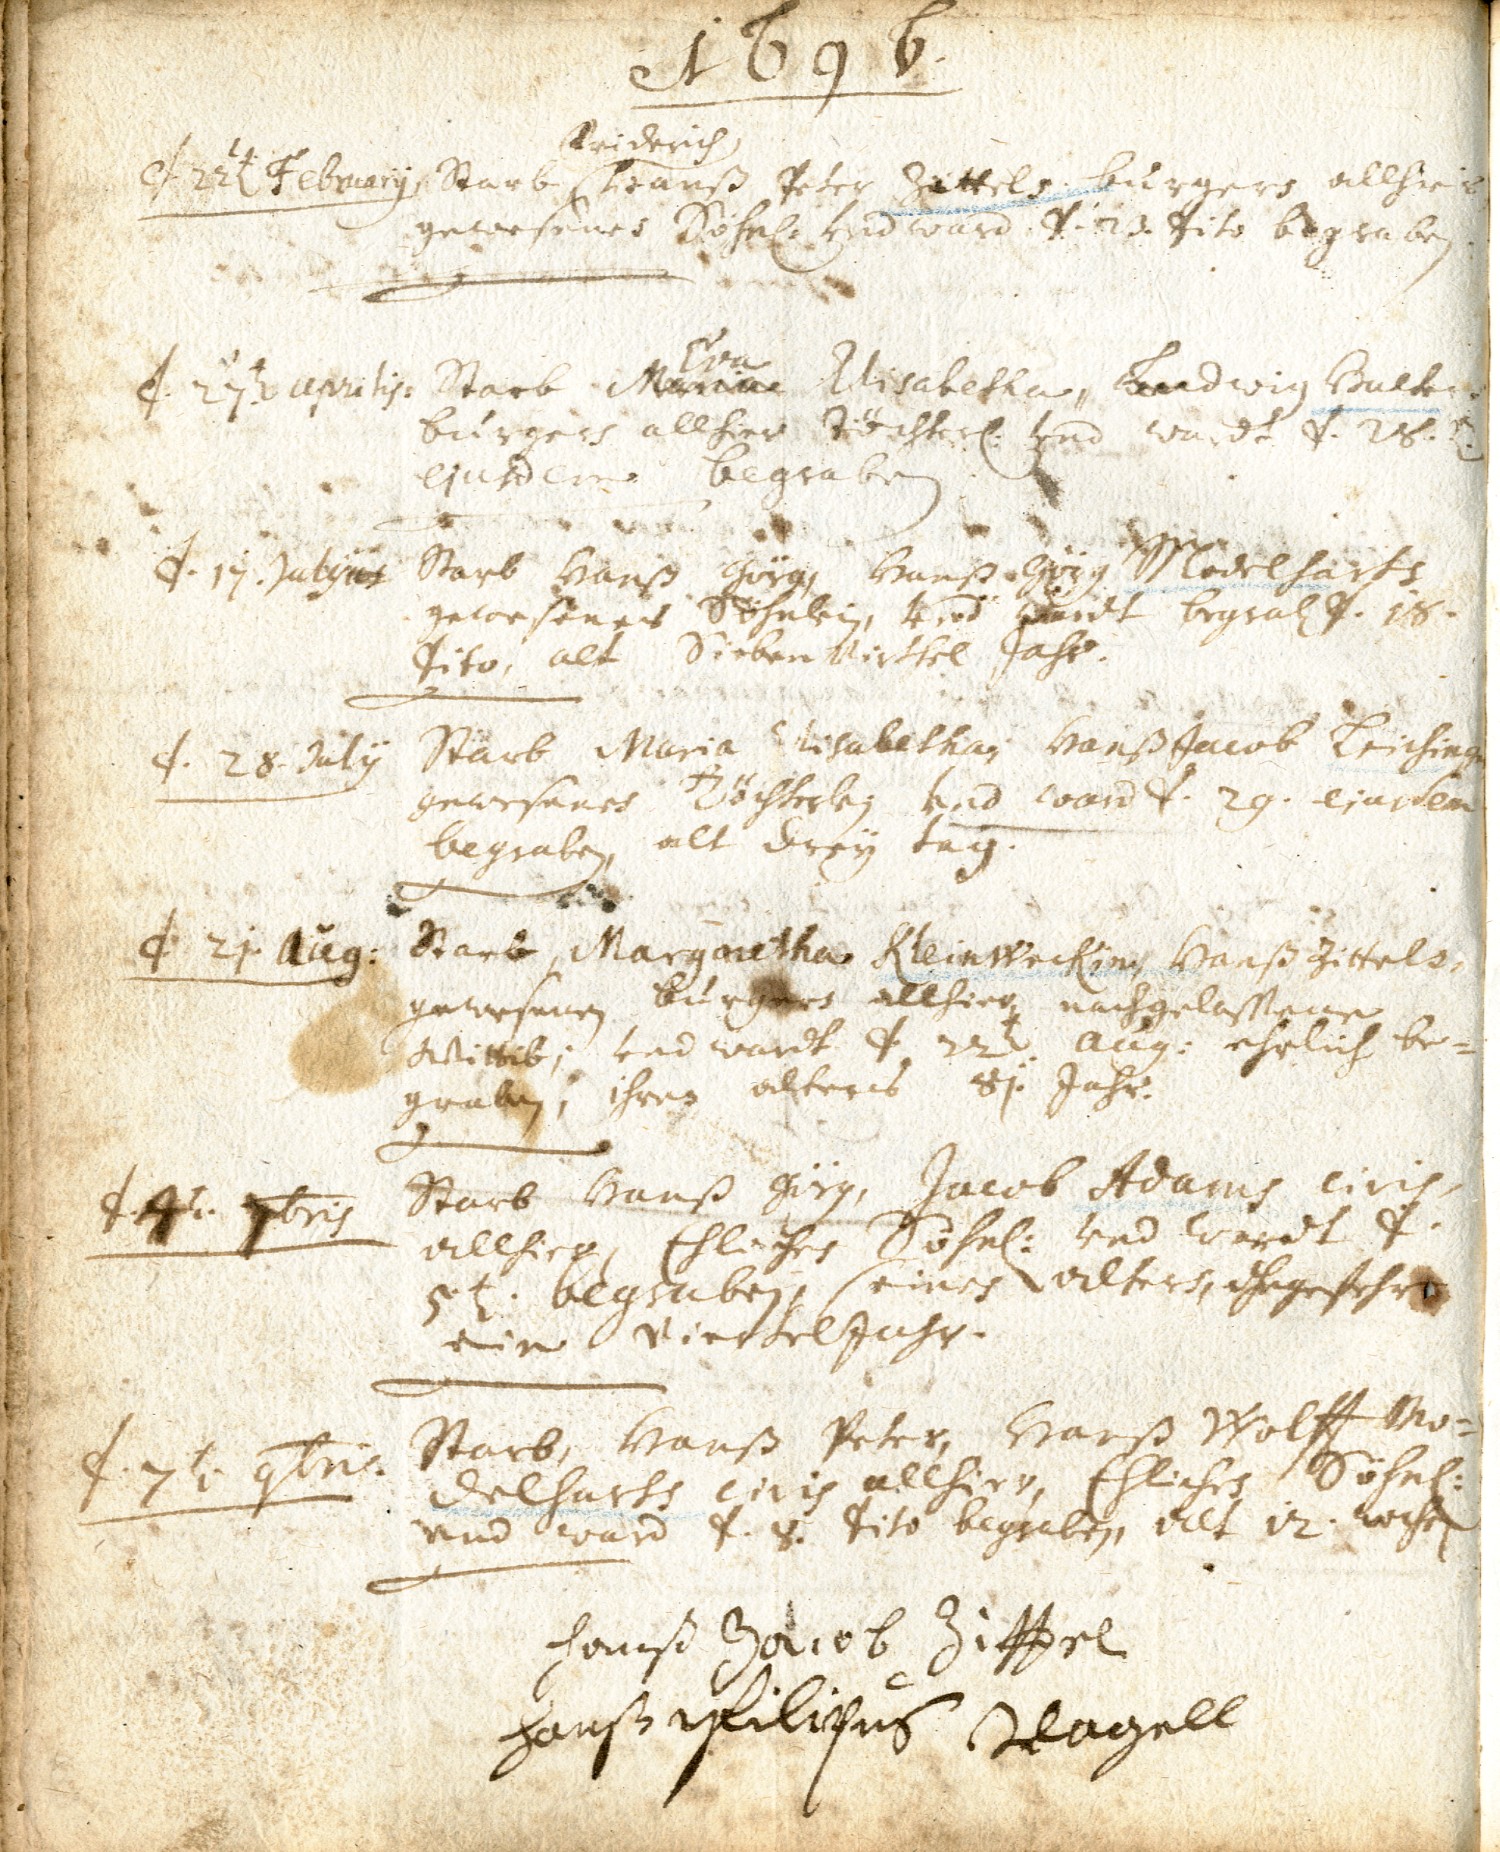 1696.
Friderich
d. 22t. February, Starb Hanß Peter Zittels burgers allhier
gewesenes Söhnl: vnd ward d. 23. dito begraben
d. 27t. Aprilis: Starb Eva Elisabetha, Ludwig
burgers allhier Töchterl: vnd wardt d. 28. t.
ejusdem begraben
d. 17. July Starb Hanß Görg, Hanß Görg Modelharts
gewesenes Söhnlein, vnd wardt begrab. d. 18.
dito, alt Sieben Virthel Jahr.
d. 28. July Starb Maria Elisabetha, Hanß Jacob
gewesenes Töchterlein vnd ward d. 29. ejusdem
begraben, alt drey tag.
d. 21. Aug: Starb, Margretha Kleinweckin, Hanß Zittels,
gewesenen burgers allhier, nachgelassene
Wittib; vnd wardt d. 22t. Aug: ehrlich be=
graben, ihres alters 81. Jahr.
d. 4t. 7bris Starb Hanß Görg, Jacob Adams civis
allhier, Ehliches Söhnl: vnd wardt d.
5t. begraben, seines alters, ohngefehr
ein vierkel Jahr.
d. 7t. 9bris. Starb, Hanß Peter, Hanß Wolff Mo=
delharts civis allhier, Ehliches Söhnl:
vnd ward d. 8. dito begraben, alt 12. wochen
hanß Jacob Zittel
hanß philipus Nagell